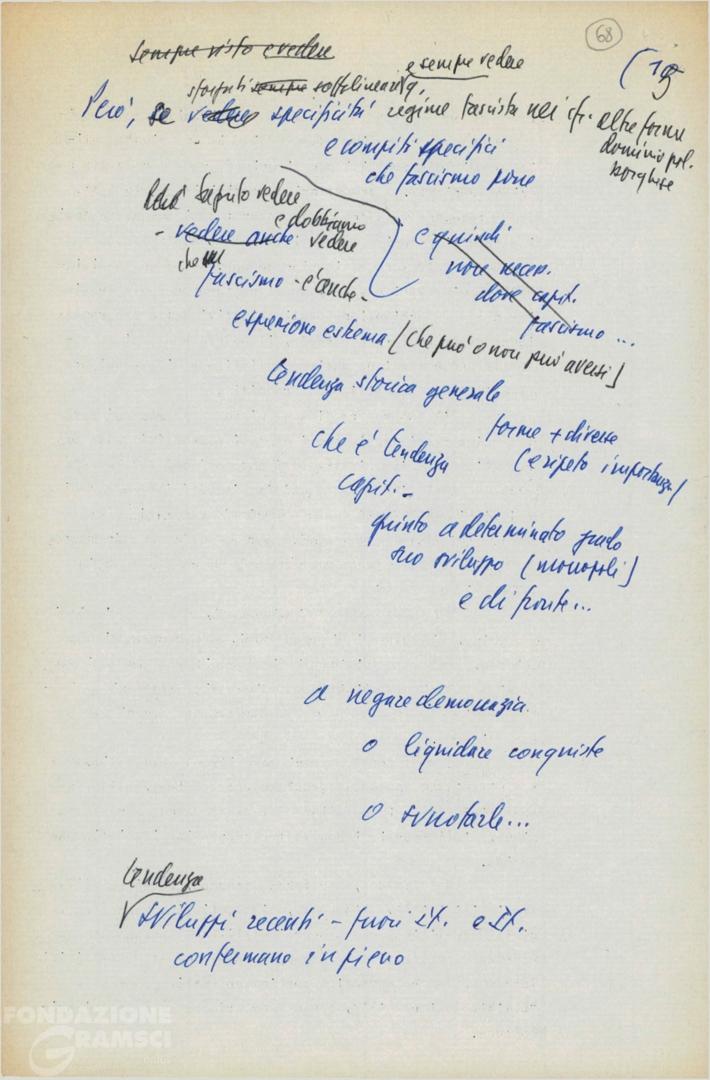 68
(19
sempre visto e vedere
e sempre vedere
sempre sottolinearlo,
Però, se vedere specificità regime fascista nei cfr. altre forme
dominio pol.
borghese
e compiti specifici
che fascismo pone
saputo vedere
e dobbiamo
- vedere anche vedere
che
fascismo - è anche -
e quindi
non neces.
dove capit.
fascismo ...
espressione estrema (che può o non può aversi)
tendenza storica generale
forme + diverse
(e ripeto importanza)
che è tendenza
capit. -
giunto a determinato grado
suo sviluppo (monopoli)
e di fronte...
a negare democrazia
o liquidare conquiste
o svuotarle...
tendenza
sviluppi recenti - fuori It. e It.
confermano in pieno
FONDAZIONE
GRAMSCI